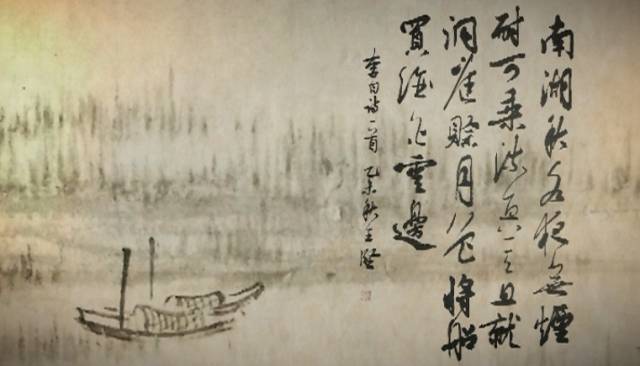 南湖秋水夜無煙
耐可乘流直上天且就
洞庭賒月色將船
買酒白雲邊
李白詩一首 乙未秋 王